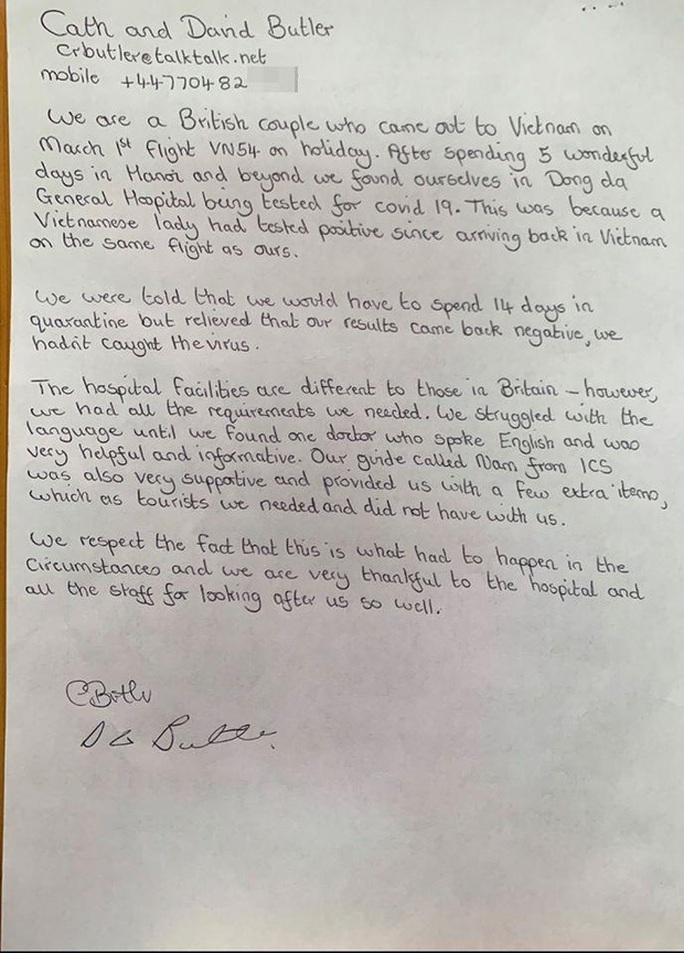 Cath and David Butler
crbutler@talktalk.net
mobile +44770482
We are a British couple who came out to Vietnam on
March 1st flight VN54 on holiday. After spending 5 wonderful
days in Hanoi and beyond we found ourselves in Dong da
General Hospital being tested for covid 19. This was because a
Vietnamese lady had tested positive since arriving back in Vietnam
on the same flight as ours.
We were told that we would have to spend 14 days in
quarantine but relieved that our results came back negative, we
hadn't caught the virus.
The hospital facilities are different to those in Britain – however,
we had all the requirements we needed. We struggled with the
language until we found one doctor who spoke English and was
very helpful and informative. Our guide called Nam from ICS
was also very supportive and provided us with a few extra items,
which as tourists we needed and did not have with us.
We respect the fact that this is what had to happen in the
circumstances and we are very thankful to the hospital and
all the staff for looking after us so well.
CButler
D Butler